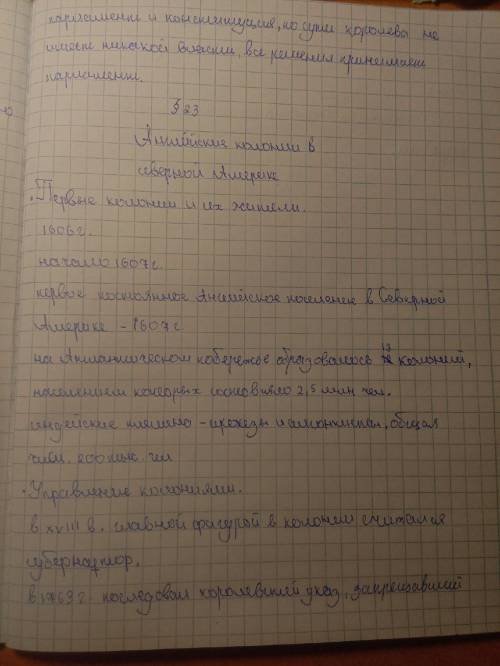 парламент и конституция, но сути королевы не
имеет никакой власти, все решения принимает
парламент.
§ 23
Английские колонии в
северной Америке
Первые колонии и их жители.
1606 г.
начало 1607 г.
первое постоянное Английское поселение в Северной
Америке - 1607 г
на Атлантическом побережье образовалось 13 колоний,
населением которых составляло 2,5 млн чел.
индейские племена - ирокезы и алгонкины, общая
числ. 200 тыс. чел
Управление колониями.
в XVIII в. главной фигурой в колонии считался
губернатор.
в 1763 г. последовал королевский указ, запрещавший